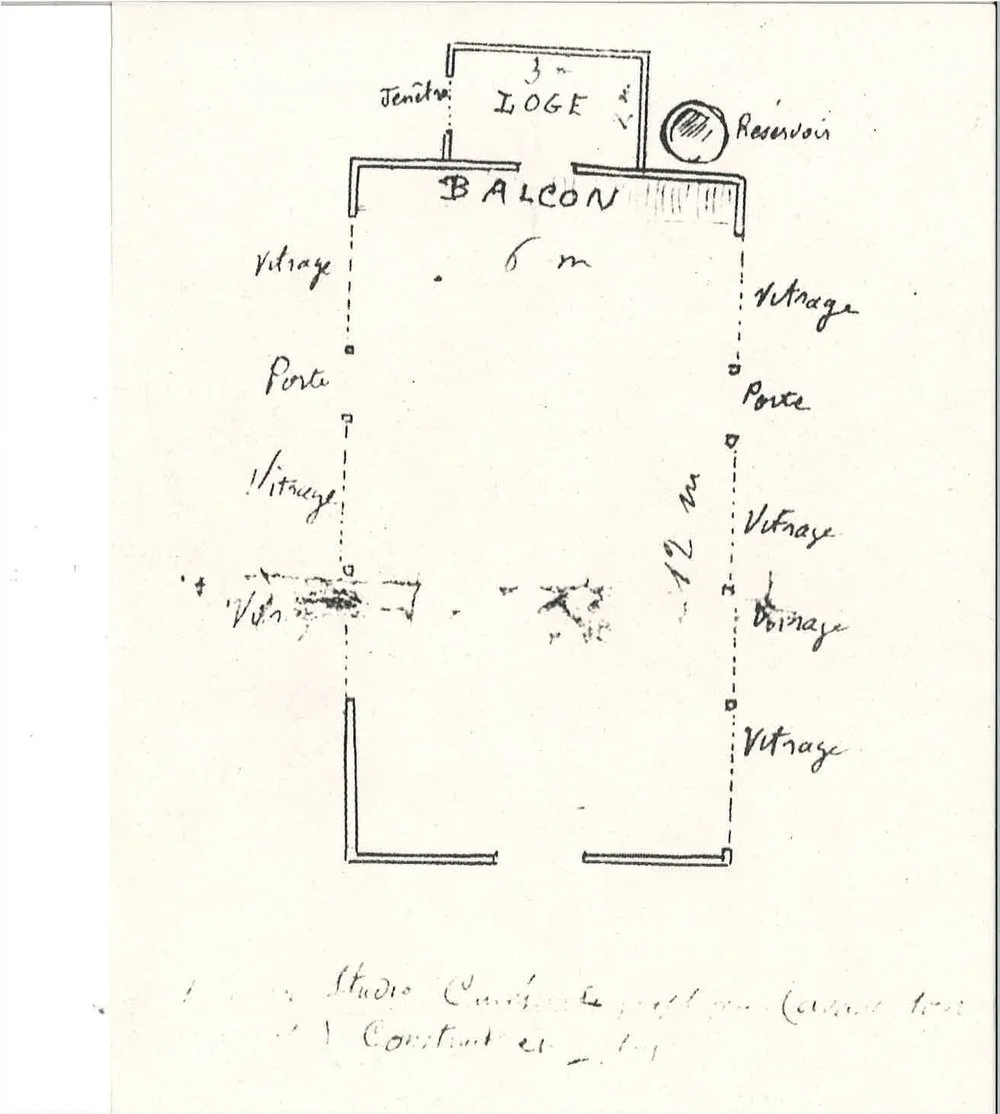 3 m
Fenêtre
LOGE
2 m
Réservoir
BALCON
6 m
Vitrage
Vitrage
Porte
Porte
Vitrage
12 m
Vitrage
Vitrage
Vitrage
Studio
Construit en